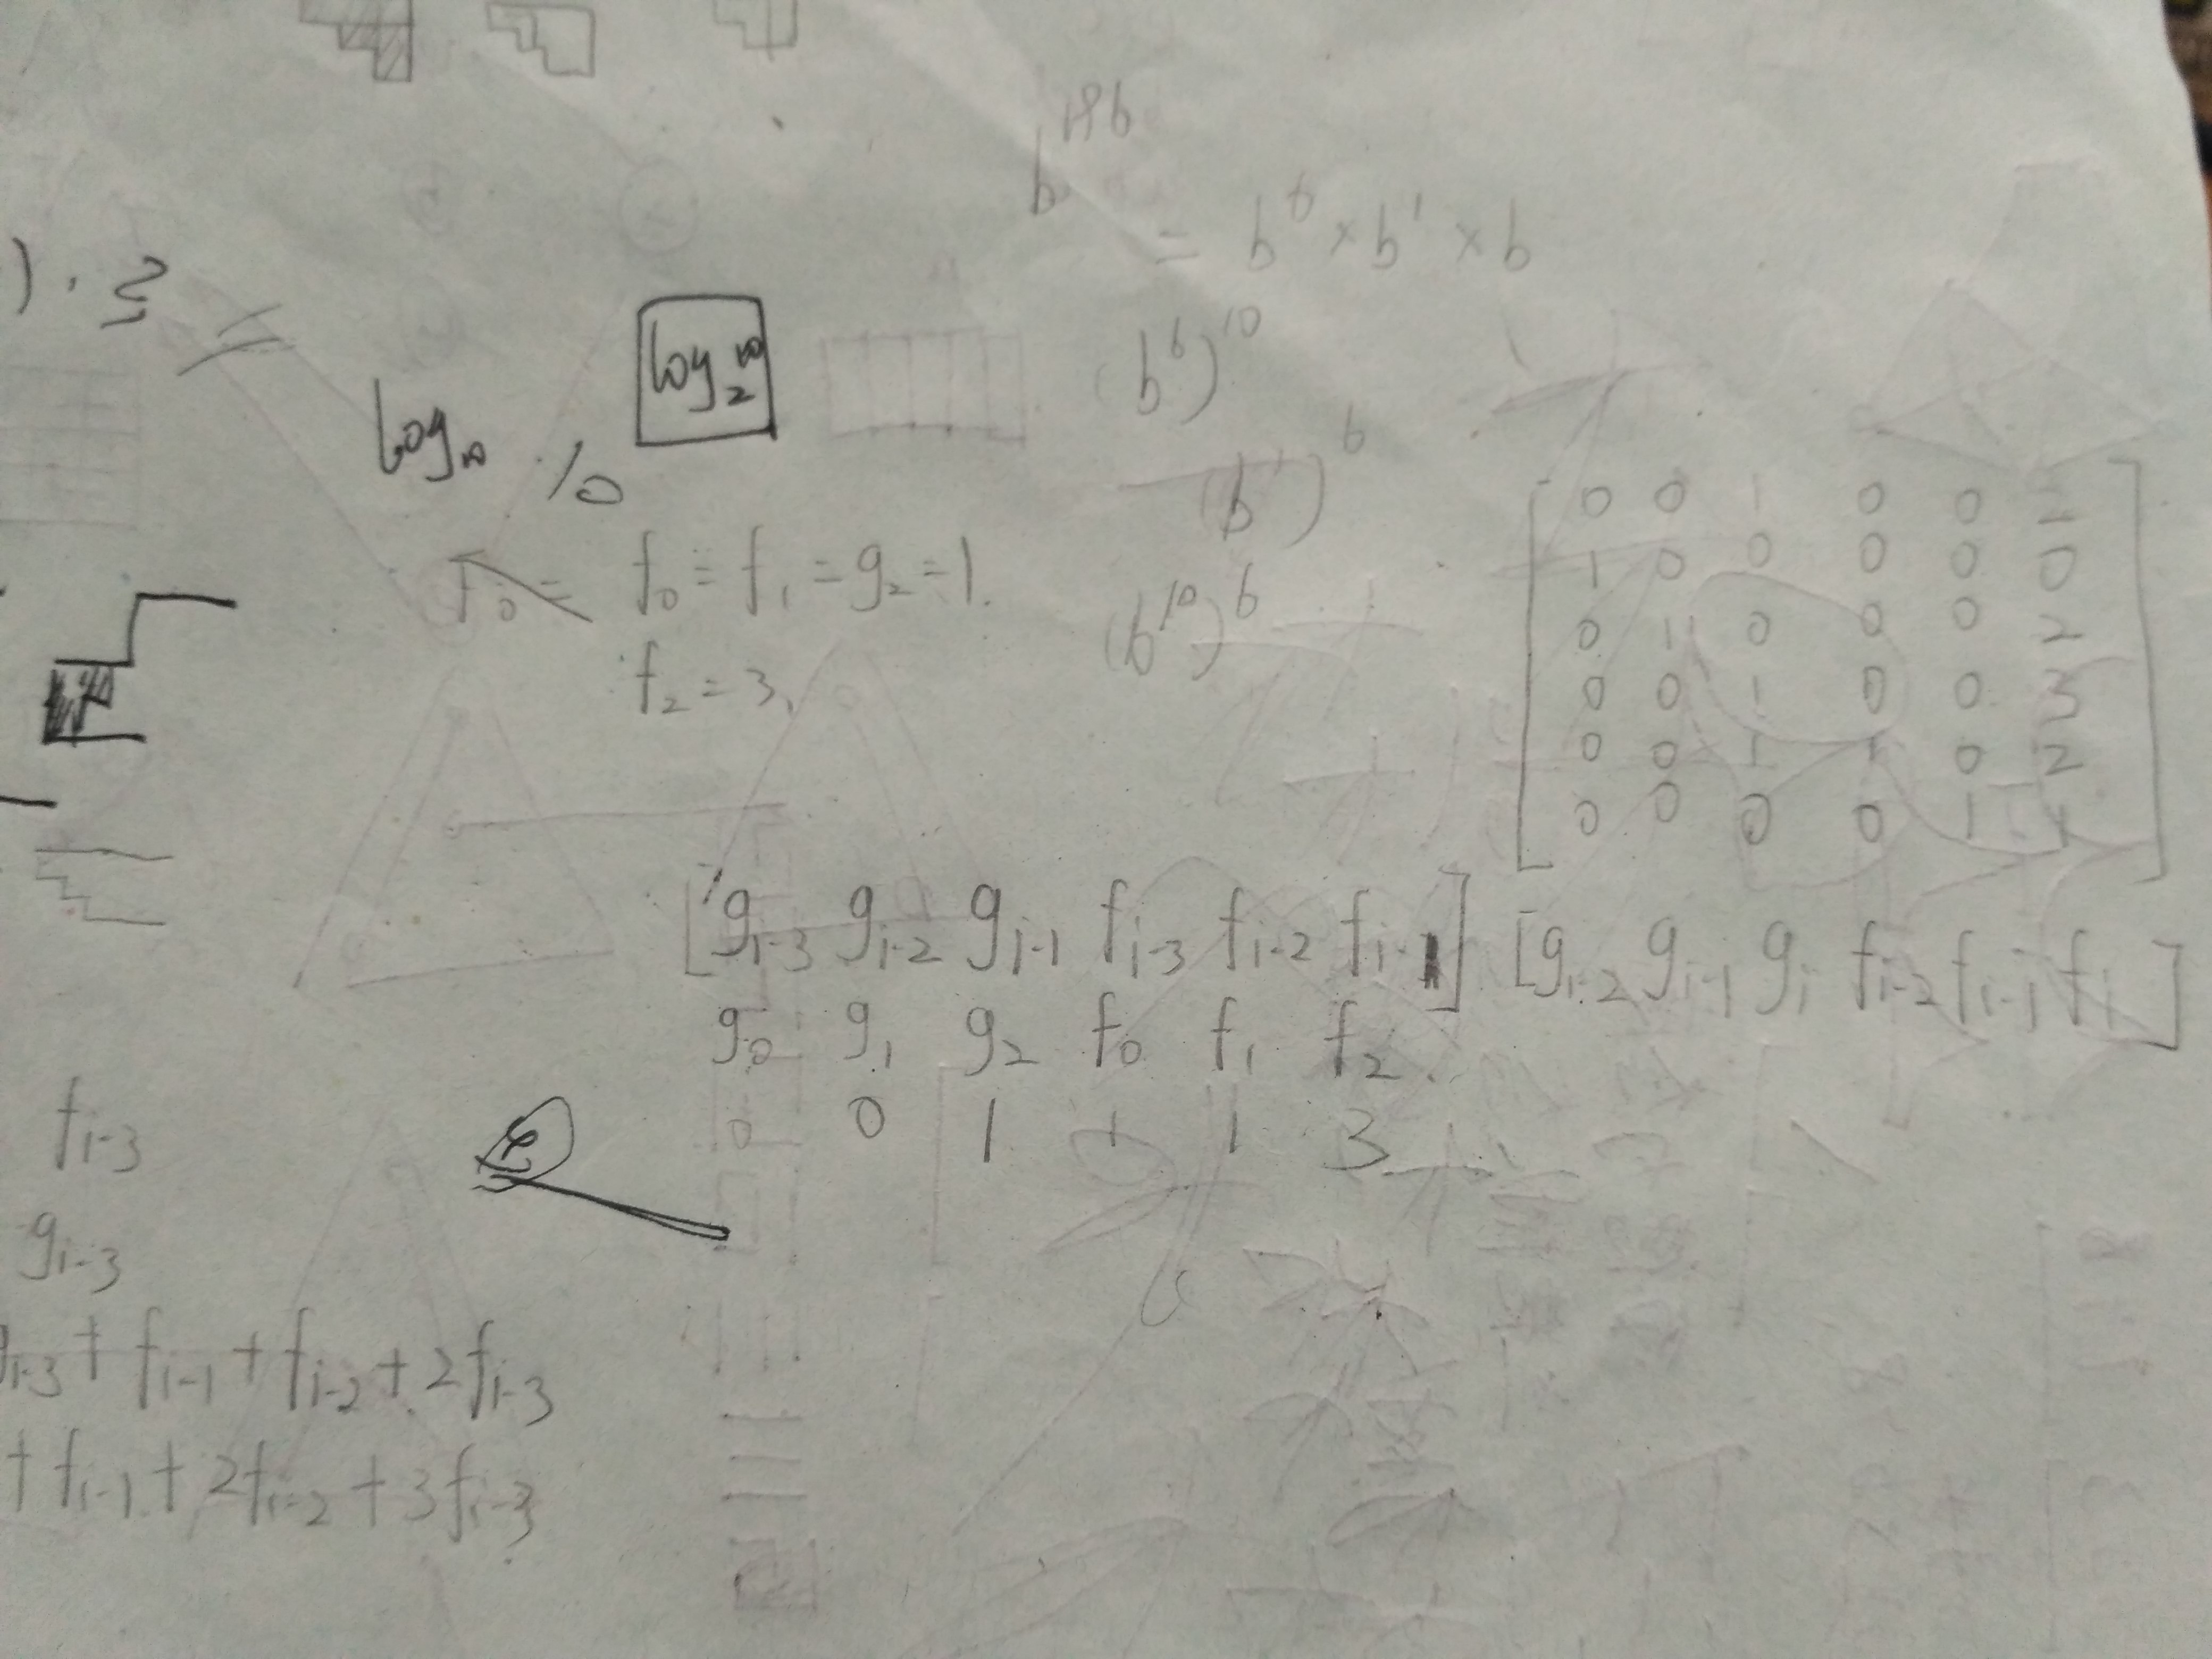 b
= b⁶ × b¹ × b
) · 2
log₂¹⁰
(b⁶)¹⁰
log₁₀ 10
(b¹)⁶
f₀ = f₀ = f₁ = g₂ = 1.
f₂ = 3.
(b¹⁰)⁶
0 0 1 0 0 1
1 0 0 0 0 0
0 1 0 0 0 2
0 0 1 0 0 3
0 0 1 1 0 2
0 0 0 0 1 1
[gᵢ₋₃ gᵢ₋₂ gᵢ₋₁ fᵢ₋₃ fᵢ₋₂ fᵢ₋₁] [gᵢ₋₂ gᵢ₋₁ gᵢ fᵢ₋₂ fᵢ₋₁ fᵢ]
g₀ g₁ g₂ f₀ f₁ f₂
0 0 1 1 1 3
fᵢ₋₃
gᵢ₋₃
gᵢ₋₃ + fᵢ₋₁ + fᵢ₋₂ + 2fᵢ₋₃
+ fᵢ₋₁ + 2fᵢ₋₂ + 3fᵢ₋₃